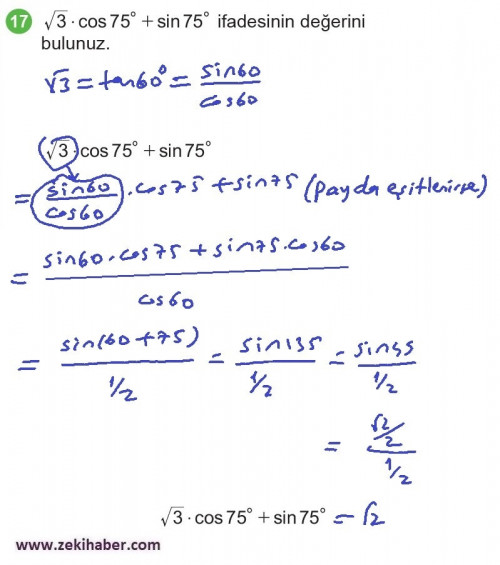 17 √3 · cos 75° + sin 75° ifadesinin değerini
bulunuz.
√3 = tan60° = sin60/cos60
√3 · cos 75° + sin 75°
= sin60/cos60 · cos75 + sin75 (payda eşitlenirse)
= (sin60 · cos75 + sin75 · cos60)/cos60
= sin(60+75)/(1/2) = sin135/(1/2) = sin45/(1/2)
= (√2/2)/(1/2)
√3 · cos 75° + sin 75° = √2
www.zekihaber.com